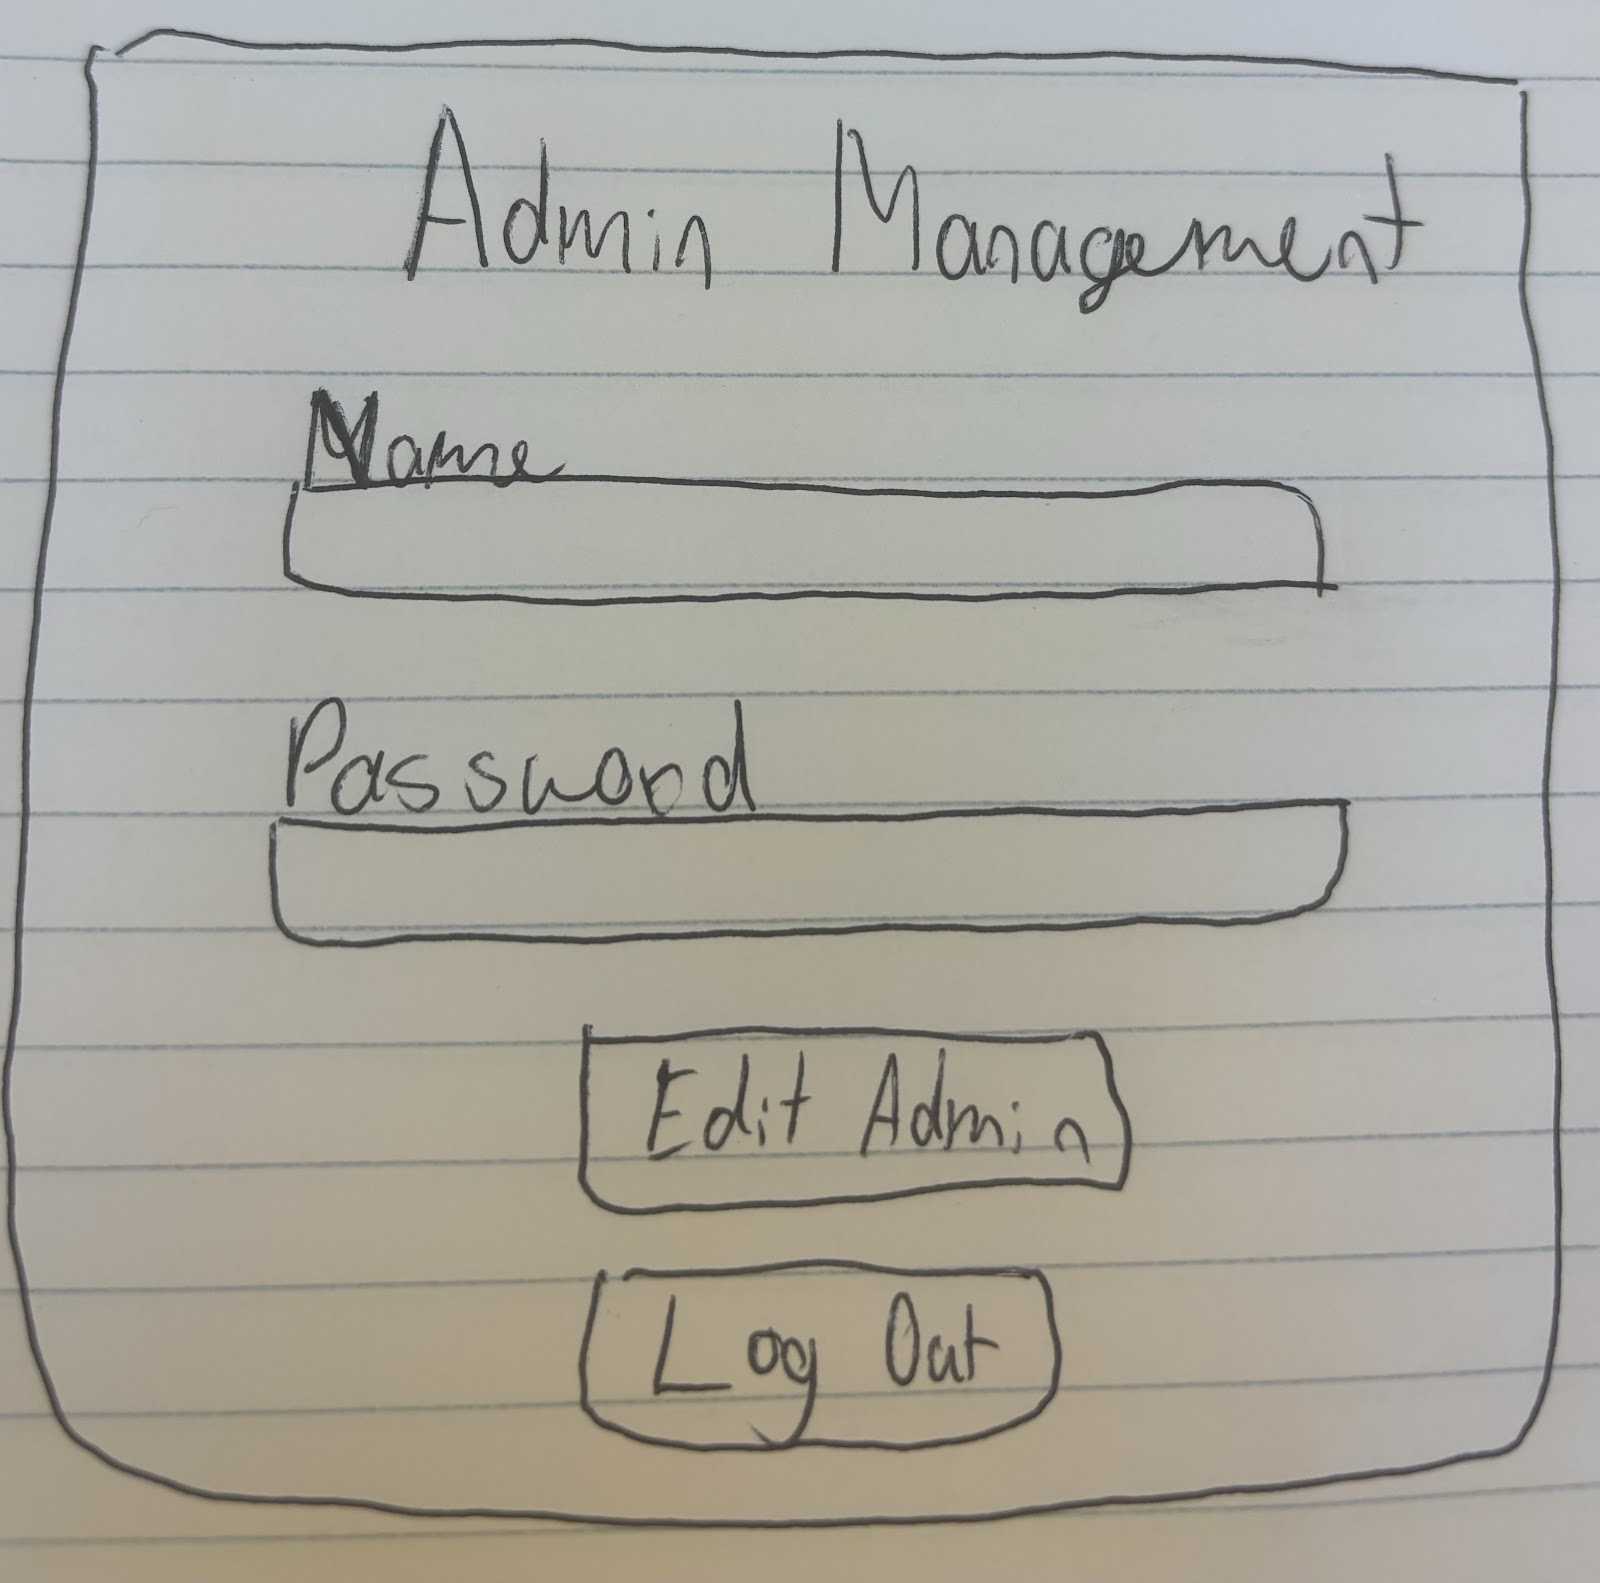 Admin Management
Name
Password
Edit Admin
Log Out